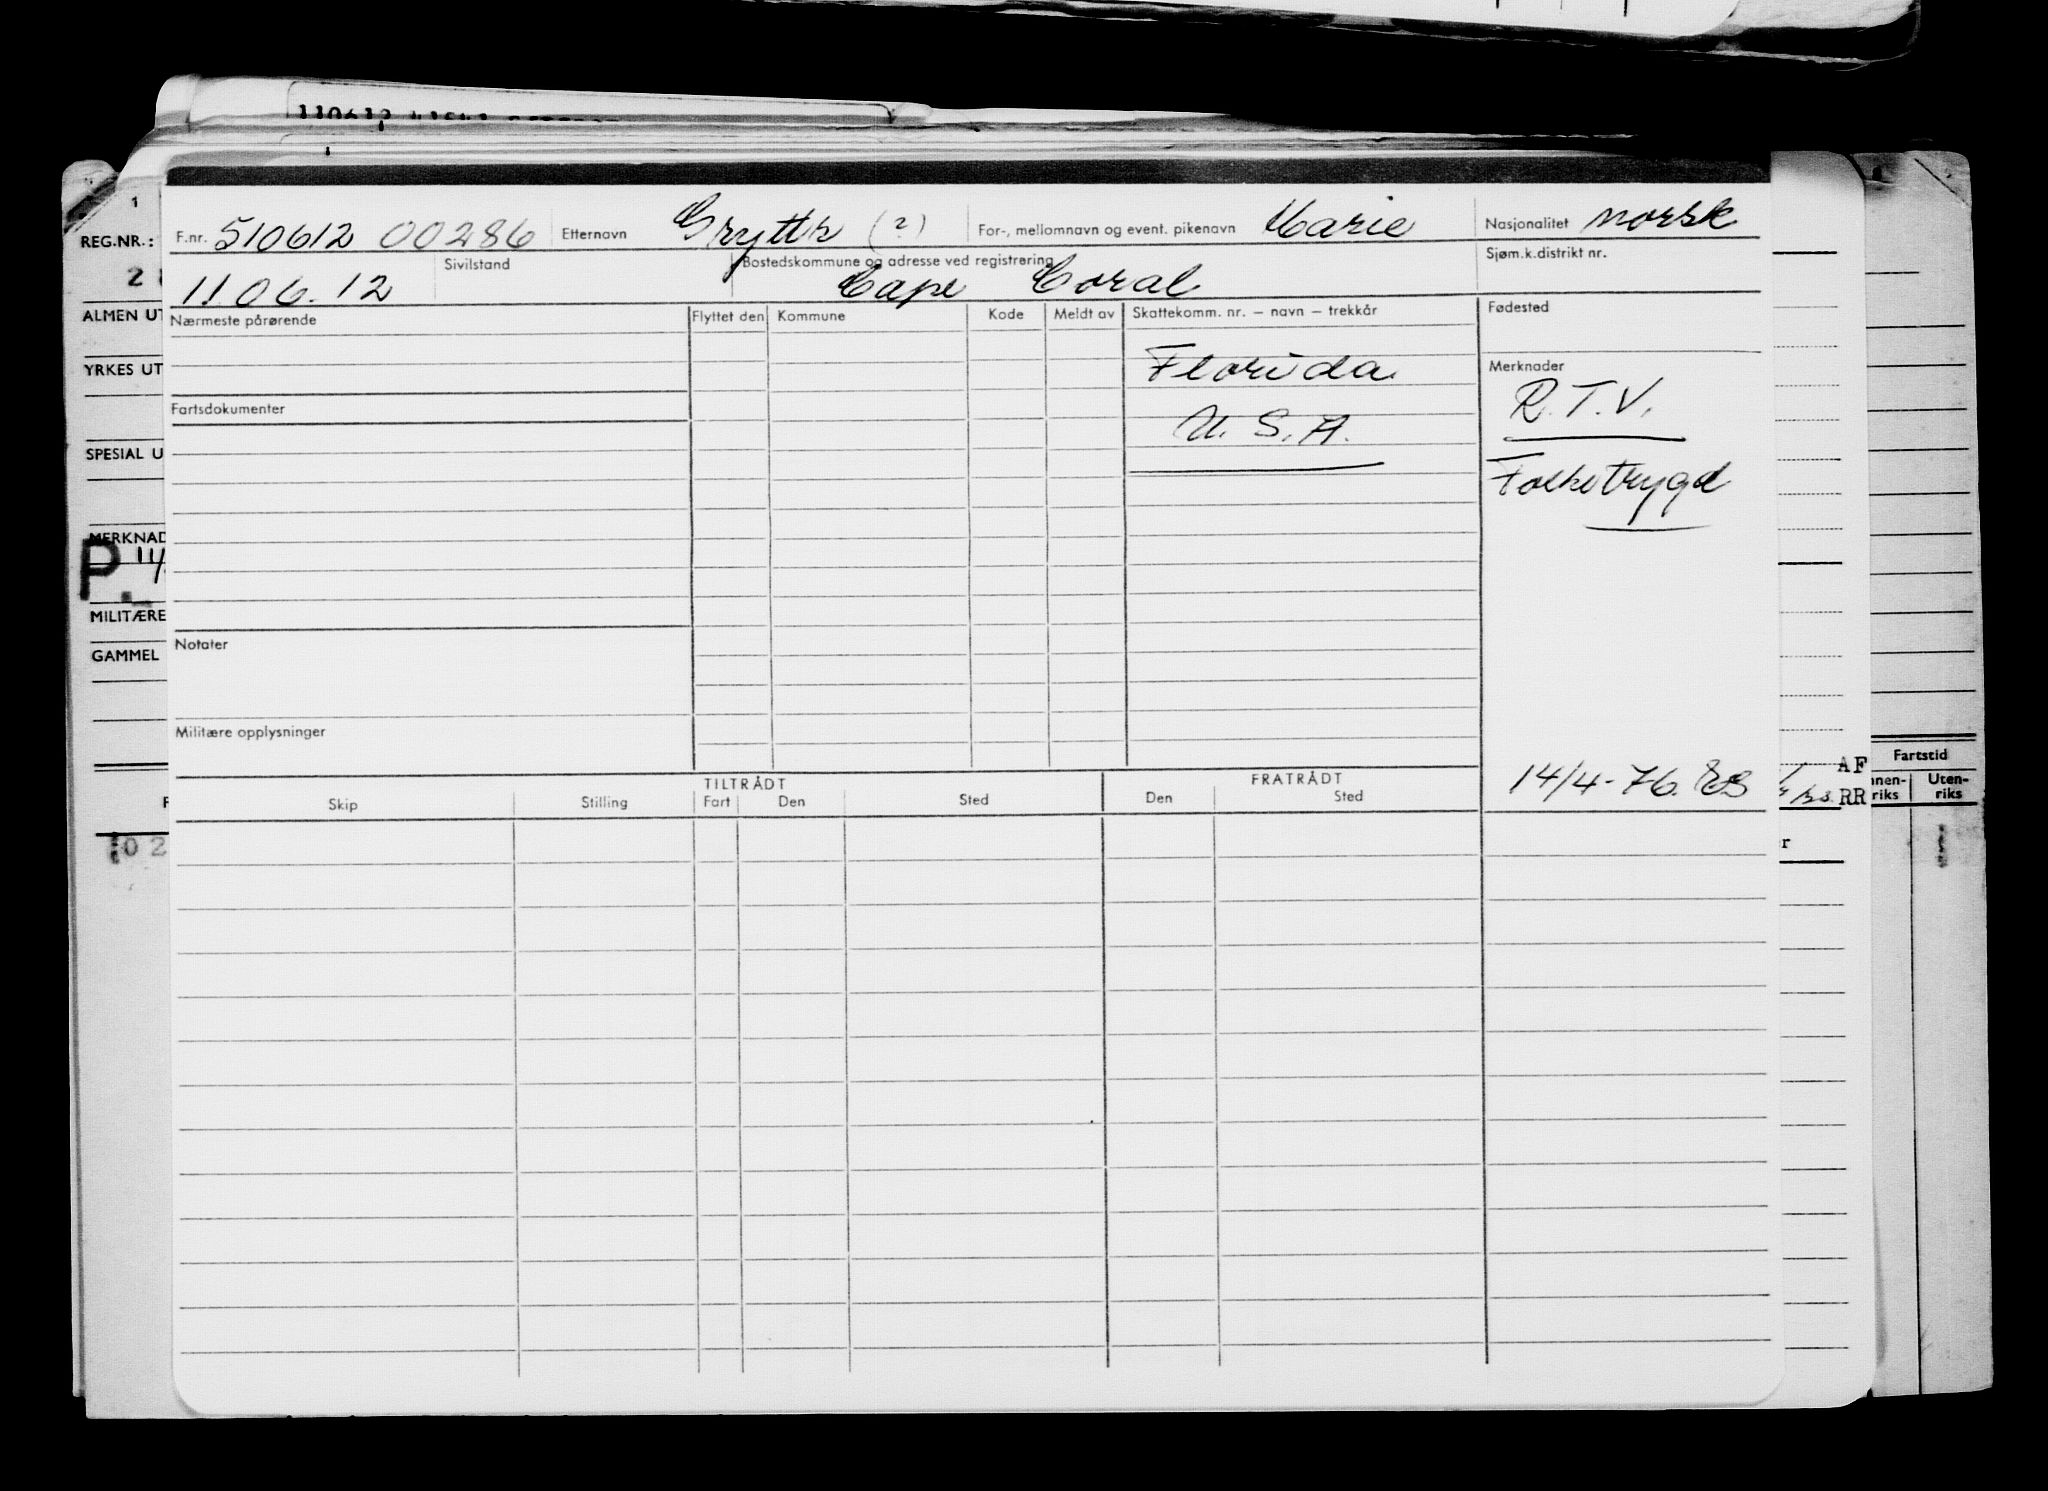 110612
1
REG.NR.:
2
ALMEN UT
YRKES UT
SPESIAL U
MERKNAD
P.
MILITÆRE
GAMMEL
02
F.nr. 510612 00286 Etternavn (?) For-, mellomnavn og event. pikenavn Marie Nasjonalitet norsk
11 06. 12 Sivilstand Bostedskommune og adresse ved registrering Cape Coral Sjøm.k.distrikt nr.
Nærmeste pårørende Flyttet den Kommune Kode Meldt av Skattekomm. nr. — navn — trekkår Fødested
Florida
Merknader
R.T.V.
Fartsdokumenter
U.S.A.
Folketrygd
Notater
Militære opplysninger
14/4-76.
TILTRÅDT FRATRÅDT
Skip Stilling Fart Den Sted Den Sted
Fartstid
AF
RR
nen-riks
Uten-riks
r